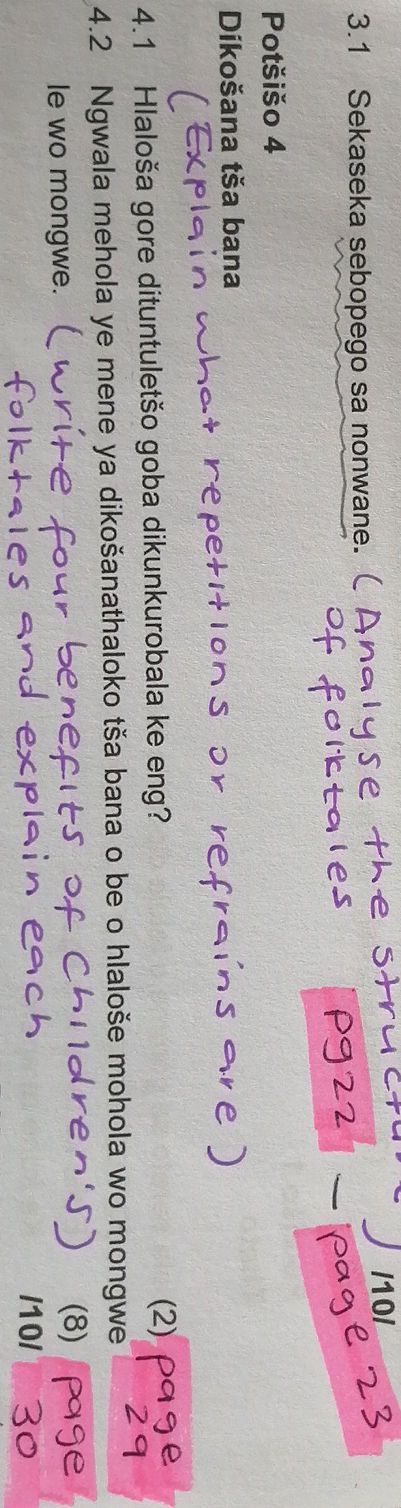 3.1 Sekaseka sebopego sa nonwane. (Analyse the structure)
/10/
of folktales pg22 – page 23
Potšišo 4
Dikošana tša bana
(Explain what repetitions or refrains are)
4.1 Hlaloša gore dituntuletšo goba dikunkurobala ke eng? (2) page 29
4.2 Ngwala mehola ye mene ya dikošanathaloko tša bana o be o hlaloše mohola wo mongwe
le wo mongwe. (write four benefits of children's) (8) page 30
folktales and explain each /10/